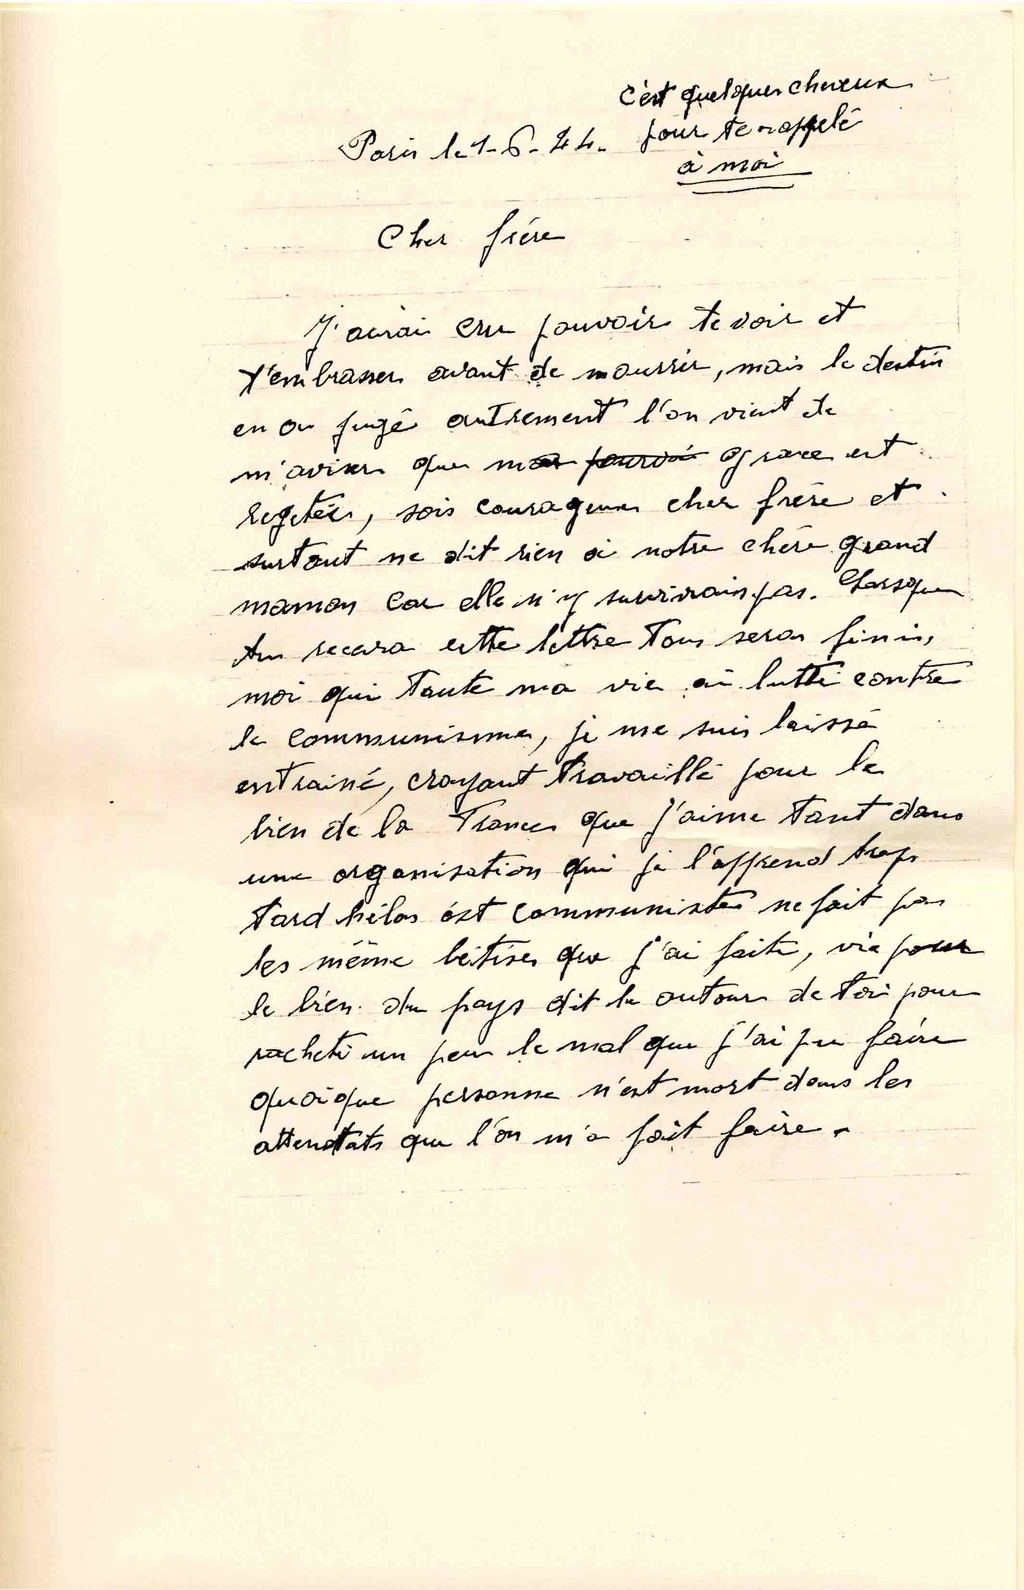 c'est quelques cheveux
pour te rappelé
à moi
Paris le 1-6-44.
Cher frére
J'aurai cru pouvoir te voir et
t'embrasser avant de mourrir, mais le destin
en a jugé autrement l'on vient de
m'aviser que ma pourvoi grace est
rejetée, sois courageux cher frére et
surtout ne dit rien a notre chére grand
maman car elle n'y survivrais pas. Lorsque
tu recevra cette lettre tous seras finis,
moi qui toute ma vie ai lutté contre
le communisme, je me suis laissé
entrainé, croyant travaillé pour le
bien de la France que j'aime tant dans
une organisation qui je l'apprend trop
tard hélas ést communiste ne fait pas
les même bêtises que j'ai faite, vie pour
le bien du pays dit le autour de toi pour
racheté un peu le mal que j'ai pu faire
quoique personne n'est mort dans les
attentats que l'on m'a fait faire.